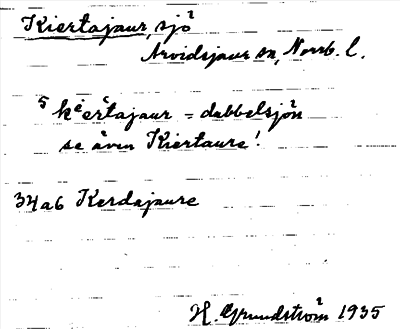 Kiertajaur, sjö
Arvidsjaur sn, Norrb. l.
5 keertajaur = dubbelsjön
se även Kiertaure!
34a6 Kerdajaure
H. Grundström 1935